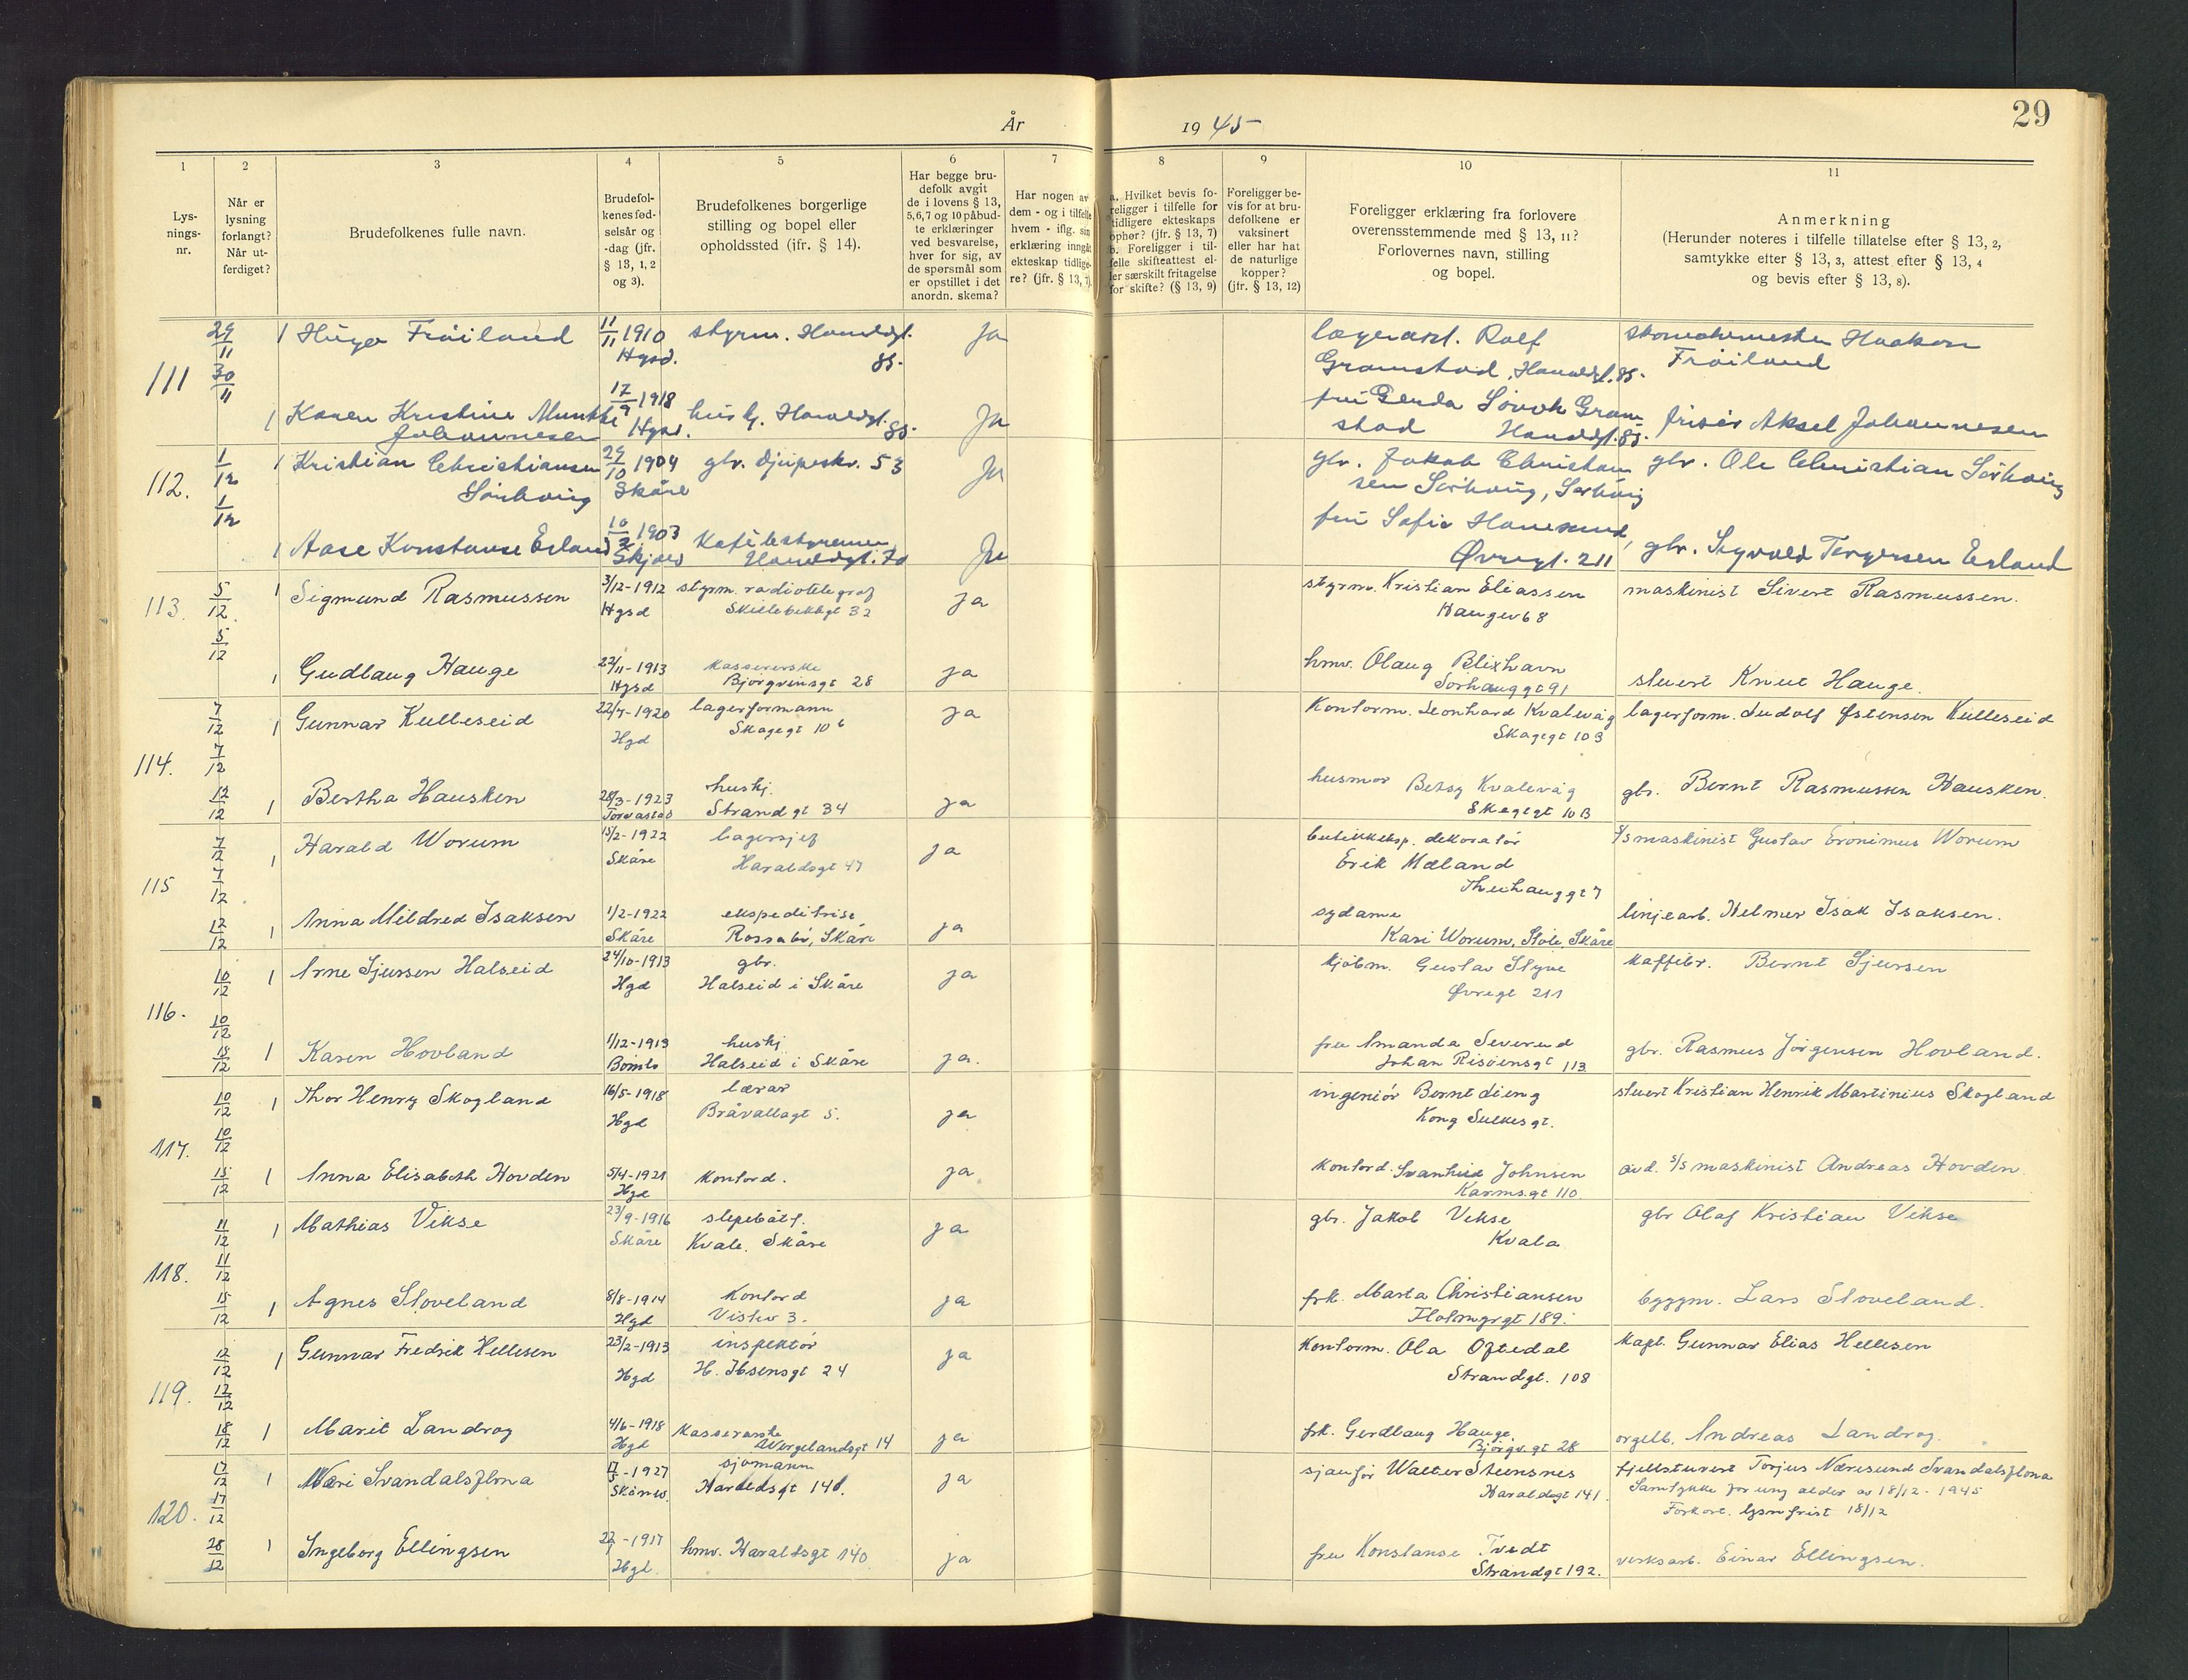 29
År 1945
1 2 3 4 5 6 7 8 9 10 11
Lys-
nings-
nr.
Når er
lysning
forlangt?
Når ut-
ferdiget?
Brudefolkenes fulle navn.
Brudefol-
kenes fød-
selsår og
-dag (jfr.
§ 13, 1, 2
og 3).
Brudefolkenes borgerlige
stilling og bopel eller
opholdssted (jfr. § 14).
Har begge bru-
defolk avgit
de i lovens § 13,
5, 6, 7 og 10 påbud-
te erklæringer
ved besvarelse,
hver for sig, av
de spørsmål som
er opstillet i det
anordn. skema?
Har nogen av
dem - og i tilfelle
hvem - iflg. sin
erklæring inngåt
ekteskap tidlige-
re? (jfr. § 13, 7)
a. Hvilket bevis fo-
religger i tilfelle for
tidligere ekteskaps
ophør? (jfr. § 13, 7)
b. Foreligger i til-
felle skifteattest el-
ler særskilt fritagelse
for skifte? (§ 13, 9)
Foreligger be-
vis for at bru-
defolkene er
vaksinert
eller har hat
de naturlige
kopper?
(jfr. § 13, 12)
Foreligger erklæring fra forlovere
overensstemmende med § 13, 11?
Forlovernes navn, stilling
og bopel.
Anmerkning
(Herunder noteres i tilfelle tillatelse efter § 13, 2,
samtykke efter § 13, 3, attest efter § 13, 4
og bevis efter § 13, 8).
111
29/11
30/11
1 Hugo Frøiland
11/11 1910
Hgsd.
styrm. Haraldsgt.
85.
Ja
lagerarb. Rolf
Gramstad, Haraldsgt. 85.
skomakermester Haakon
Frøiland
1 Karen Kristine Munthe
Johannesen
17/9 1918
Hgsd.
husbg. Haraldsgt.
85.
Ja
fru Gerda Løvvk Gram
stad Haraldsgt. 85.
frisør Aksel Johannesen
112.
1/12
1/12
1 Kristian Christiansen
Sørhaug
29/10 1904
Skåre
gbr. Djupeskv. 53
Ja
gbr. Jakob Christian
sen Sørhaug, Sørhaug
gbr. Ole Christian Sørhaug
1 Aase Konstanse Erland
10/2 1903
Skjold
Kafébestyrerinne
Haraldsgt. 70
Ja
fru Sofie Haugesund,
Øvregt. 211
gbr. Sigvald Torgersen Erland
113.
5/12.
5/12
1 Sigmund Rasmussen
3/12-1912
Hgsd
styrm. radiotelegraf
Skillebekkgt 32
Ja
styrm. Kristian Eliassen
Haugev 68
maskinist Sivert Rasmussen.
1 Gudlaug Hauge
22/11-1913
Hgsd
kassererske
Bjørgvinsgt 28
ja
hmv. Olaug Blixhavn
Sørhauggt 91
stuert Knut Hauge.
114.
7/12
7/12
12/12
1 Gunnar Kulleseid
22/7-1920
Hgd
lagerformann
Skagegt 10 b
ja
Kontorm. Leonhard Kvalevåg
Skagegt 10 B
lagerform. Ludolf Østensen Kulleseid
1 Bertha Hausken
28/3-1923
Torvastad
hushj.
Strandgt 34
ja
husmor Betsy Kvalevåg
Skagegt 10 B
gbr. Bernt Rasmussen Hausken.
115
7/12
7/12
12/12
1 Harald Worum
15/2-1922
Skåre
lagersjef
Haraldsgt 47
ja
butikkeksp. dekoratør
Erik Mæland
Thuhauggt 7
S/S maskinist Gustav Eronimus Worum
1 Anna Mildred Isaksen
1/2-1922
Skåre
ekspeditrise
Rossabø, Skåre
ja
sydame
Kari Worum, Støle, Skåre
linjearb. Helmer Isak Isaksen.
116.
10/12
10/12
15/12
1 Arne Sjursen Halseid
24/10-1913
Hgd
gbr.
Halseid i Skåre
ja
kjøbm. Gustav Styve
Øvregt 211
kaffebr. Bernt Sjursen
1 Karen Hovland
1/12-1913
Bømlo
hushj
Halseid i Skåre
ja.
fru Amanda Severud
Johan Risøensgt 113
gbr. Rasmus Jørgensen Hovland.
117.
10/12
10/12
15/12
1 Thor Henry Skogland
16/5-1918
Hgd
lærar
Bråvallagt 5.
ja
ingeniør Bernt Lieng
Kong Sulkesgt.
stuert Kristian Henrik Martinius Skogland
1 Anna Elisabeth Hovden
5/4-1921
Hgd
kontord.
ja
kontord. Svanhild Johnsen
Karmsgt 110
avd. S/S maskinist Andreas Hovden
118.
11/12
11/12
15/12
1 Mathias Vikse
23/9-1916
Skåre
slepebåtf.
Kvale. Skåre
ja
gbr. Jakob Vikse
Kvala
gbr Olaf Kristian Vikse
1 Agnes Stoveland
8/8-1914
Hgd
kontord
Vistv 3.
ja
frk. Marta Christiansen
Flotmyrgt 189.
byggm. Lars Stoveland.
119.
12/12
12/12
18/12
1 Gunnar Fredrik Hellesen
23/2-1913
Hgd
inspektør
H. Ibsensgt 24
ja
Kontorm. Ola Oftedal
Strandgt. 108
Kapt. Gunnar Elias Hellesen
1 Marit Landrog
4/6-1918
Hgd
kassererske
Wergelandsgt 14
ja
frk. Gerdlaug Hauge.
Bjørgv.gt 28
orgelb. Andreas Landrog.
120.
17/12
17/12
28/12
1 Næri Svandalsflona
17/5-1927
sjømann
Haraldsgt 140.
ja
sjauför Walter Steensnes
Haraldsgt 141.
fjellstuert Torjus Næresund Svandalsflona
Samtykke for ung alder av 18/12-1945
Forkort. lysn.frist 18/12
1 Ingeborg Ellingsen
-1917
Hgd.
hmv. Haraldsgt 140.
ja
fru Konstanse Tvedt
Strandgt 192.
verksarb. Einar Ellingsen.